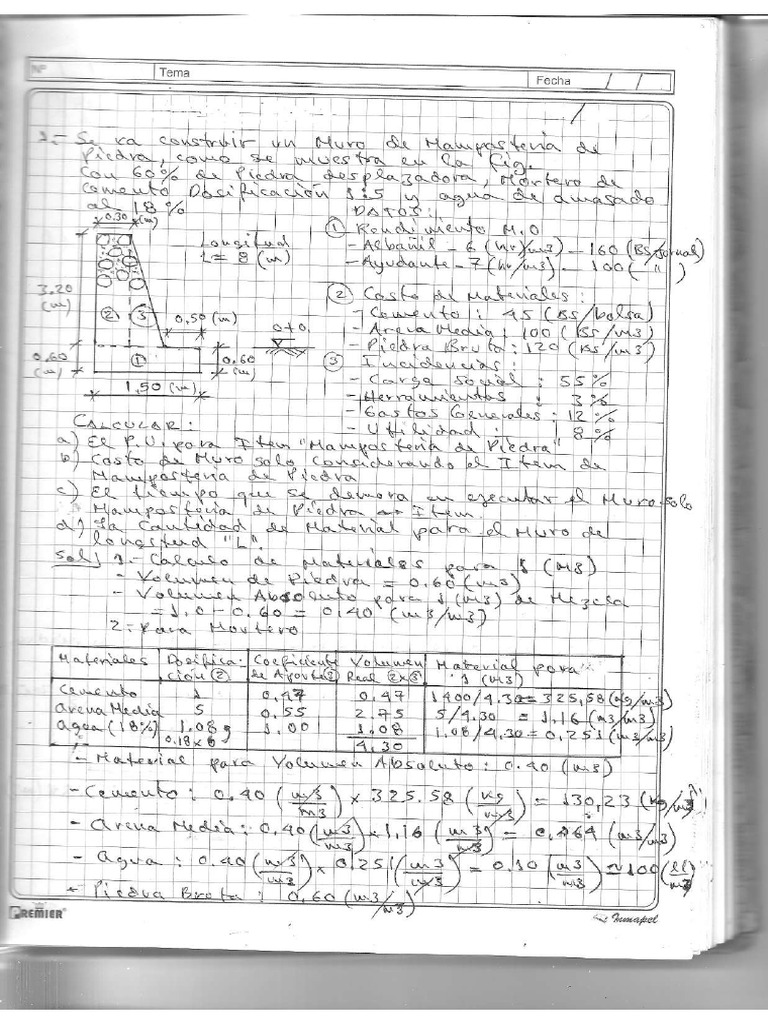 Nº Tema Fecha / /
1
1.- Se va construir un Muro de Mamposteria de
Piedra, como se muestra en la fig.
Con 60% de Piedra desplazadora, Mortero de
Cemento Dosificación 1:5 y agua de amasado
al 18%
DATOS:
0.30 (m)
Longitud
L= 8 (m)
① Rendimiento M.O
- Albañil - 6 (hr/m3) - 160 (Bs/Jornal)
- Ayudante - 7 (hr/m3) - 100 ( " )
3.20
(m)
② ③
0.50 (m)
0+0
② Costo de Materiales:
- Cemento: 45 (Bs/bolsa)
- Arena Media: 100 (Bs/m3)
- Piedra Bruta: 120 (Bs/m3)
0.60
(m)
①
0.60
(m)
1,50 (m)
③ Incidencias:
- Carga social: 55%
- Herramientas: 3%
- Gastos Generales: 12%
- Utilidad: 8%
CALCULAR:
a) El P.U. para Item "Mamposteria de Piedra"
b) Costo de Muro solo considerando el Item de
Mamposteria de Piedra
c) El tiempo que se demora en ejecutar el Muro solo
Mamposteria de Piedra Item.
d) La Cantidad de Material para el Muro de
longitud "L".
Sol) 1.- Calculo de Materiales para 1 (M3)
- Volumen de Piedra = 0.60 (m3)
- Volumen Absoluto para 1 (m3) de Mezcla
= 1.0 - 0.60 = 0.40 (m3/m3)
2.- para Mortero
Materiales Dosifica- Coeficiente Volumen Material para
ción ② de Aporte ② Real ②x③ 1 (m3)
Cemento 1 0.47 0.47 1400/4.30 = 325,58 (kg/m3)
arena Media 5 0.55 2.75 5/4.30 = 1.16 (m3/m3)
agua (18%) 1.08 1.00 1.08 1.08/4.30 = 0.251 (m3/m3)
0.18x6 4.30
- Material para Volumen Absoluto: 0.40 (m3)
- Cemento: 0.40 (m3/m3) x 325.58 (kg/m3) = 130,23 (kg/m3)
- Arena Media: 0.40 (m3/m3) x 1,16 (m3/m3) = 0,464 (m3/m3)
- Agua: 0.40 (m3/m3) x 0.251 (m3/m3) = 0.10 (m3/m3) ≈ 100 (lt/m3)
- Piedra Bruta: 0.60 (m3/m3)
PREMIER Inmapel